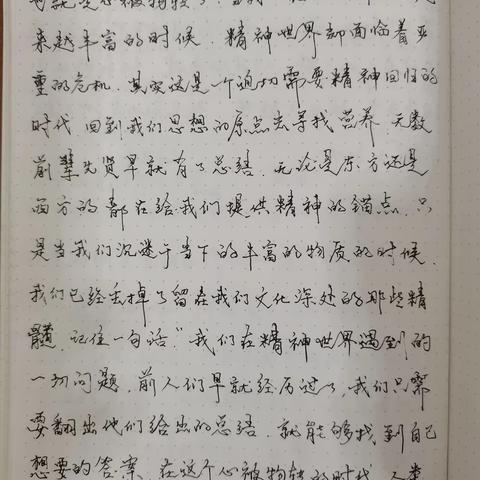 来越丰富的时候，精神世界却面临着严
重的危机，其实这是一个迫切需要精神回归的
时代，回到我们思想的原点去寻找营养，无数
前辈先贤早就有了总结，无论是东方还是
西方的都在给我们提供精神的锚点，只
是当我们沉迷于当下的丰富的物质的时候，
我们已经丢掉了留在我们文化深处的那些精
髓，记住一句话“我们在精神世界遇到的
一切问题，前人们早就经历过了，我们只需
要翻出他们给出的总结，就能够找到自己
想要的答案，在这个心被物转的时代，人类